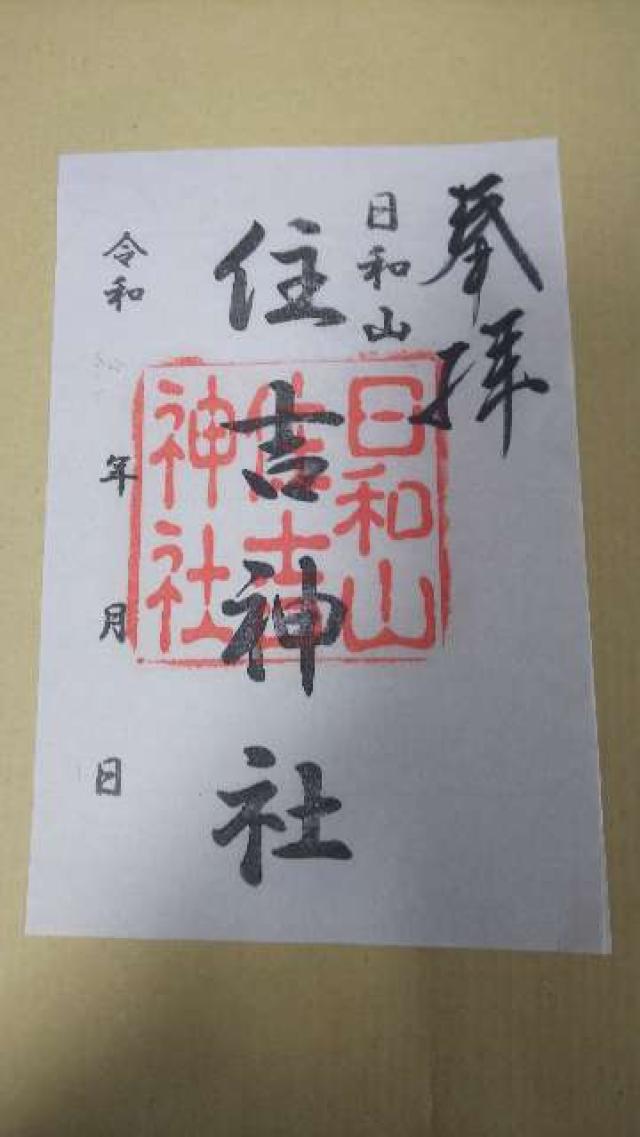 奉拝
日和山
住吉神社
令和 年 月 日
日和山
住吉
神社